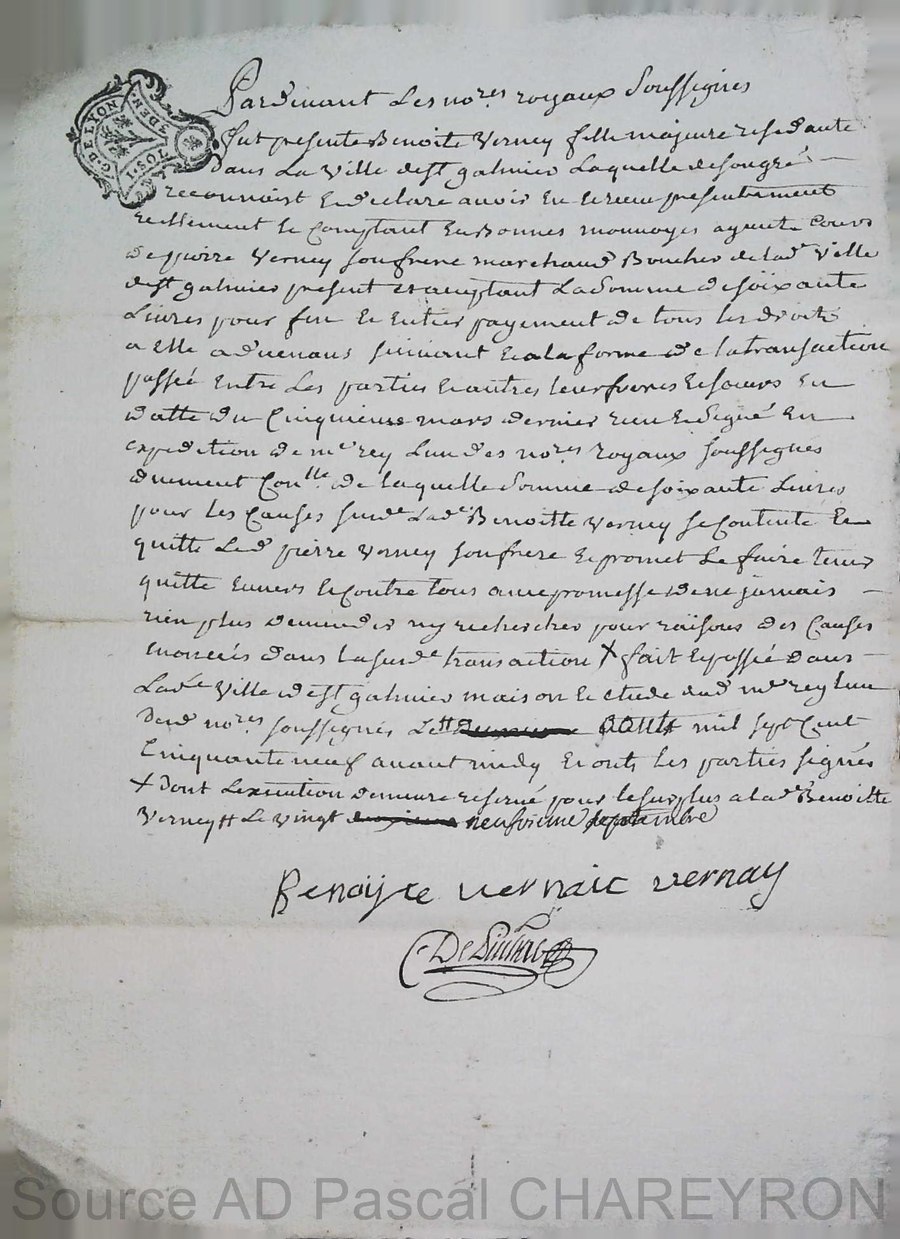 G. DE LYON
1 SOL
3 DEN.
Pardevant Les no.res royaux Soussignes
fut presente Benoite Verney fille majeure residante
dans La Ville de st galmier Laquelle de son gré
reconnoist Et declare avoir Eu Et receu presentement
reellement Et Comptant En Bonnes monnoyes ayants Cours
de pierre Verney son frere marchand Boucher de lad.e Ville
de st galmier present et acceptant La Somme de soixante
Livres pour fin Et Entier payement de tous les droits
a Elle advenans suivant Et a la forme de la transaction
passée Entre Les parties Et autres leur freres Et soeurs En
datte du Cinquieme mars dernier receu Et Signé En
expedition de me rey Lun des no.res royaux soussignes
duement Con.llé de laquelle Somme de soixante Livres
pour les Causes susd.e Lad.e Benoitte Verney se Contente Et
quitte Led. pierre Verney son frere Et promet Le faire tenir
quitte Envers Et Contre tous avec promesse de ne jamais
rien plus demander ny rechercher pour raisons des Causes
Enoncées dans la susd.e transaction X fait Et passée dans
Lad.e Ville de st galmier maison Et Etude dud. me rey Lun
desd. no.res soussignés Le # aoust mil sept Cent
Cinquante neuf avant midy Et onts les parties signés
X dont L'execution demeure reservé pour le surplus a lad.e Benoitte
Verney # Le vingt neufvieme septembre
Benoijte vernaic vernay
Source AD Pascal CHAREYRON